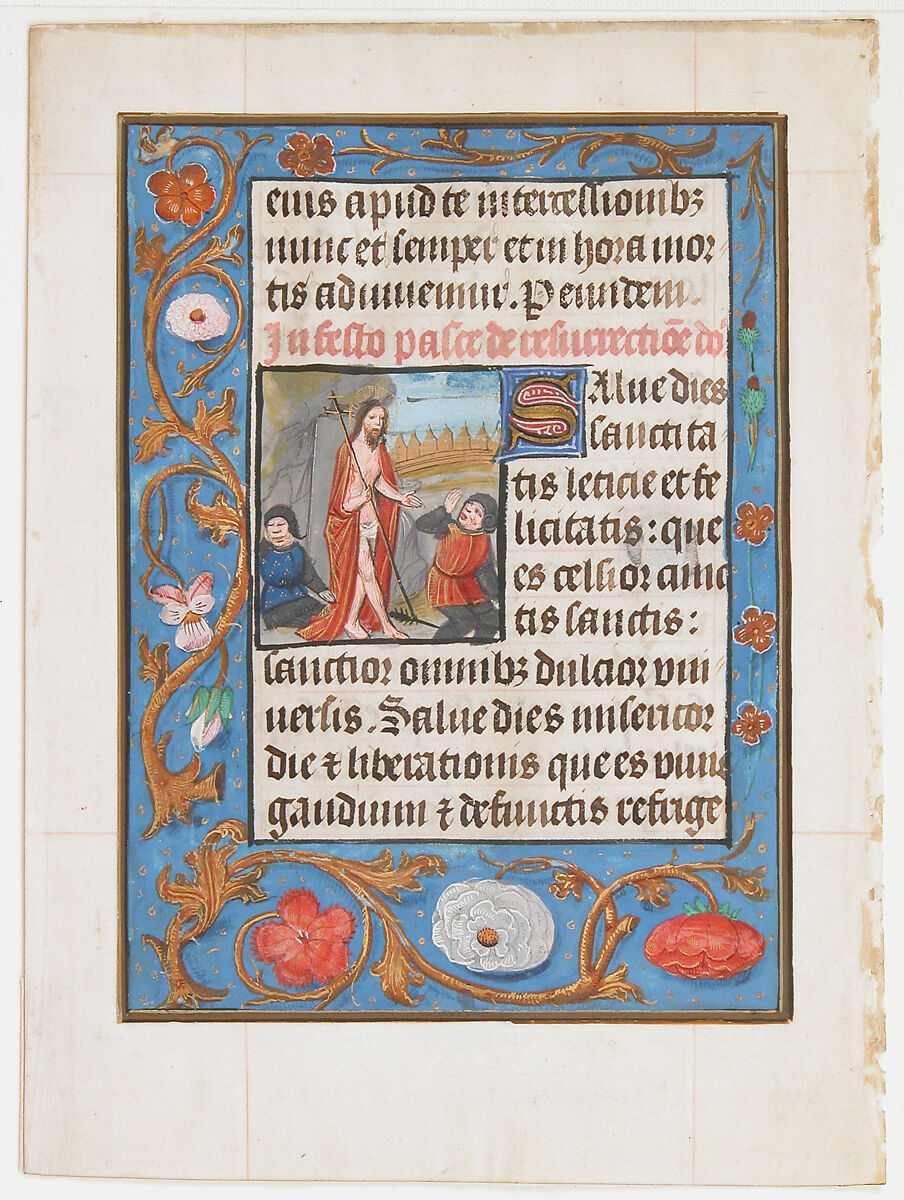 eius apud te intercessionibꝫ
nunc et semper et in hora mor
tis adiuuemur. P eundem.
In festo pasce de resurrectiōe do
SAlue dies
sanctita
tis leticie et fe
licitatis: que
es celsior cunc
tis sanctis:
sanctior omnibꝫ dulcior vni
uersis. Salue dies misericor
die ⁊ liberationis que es viuis
gaudium ⁊ defunctis refrige